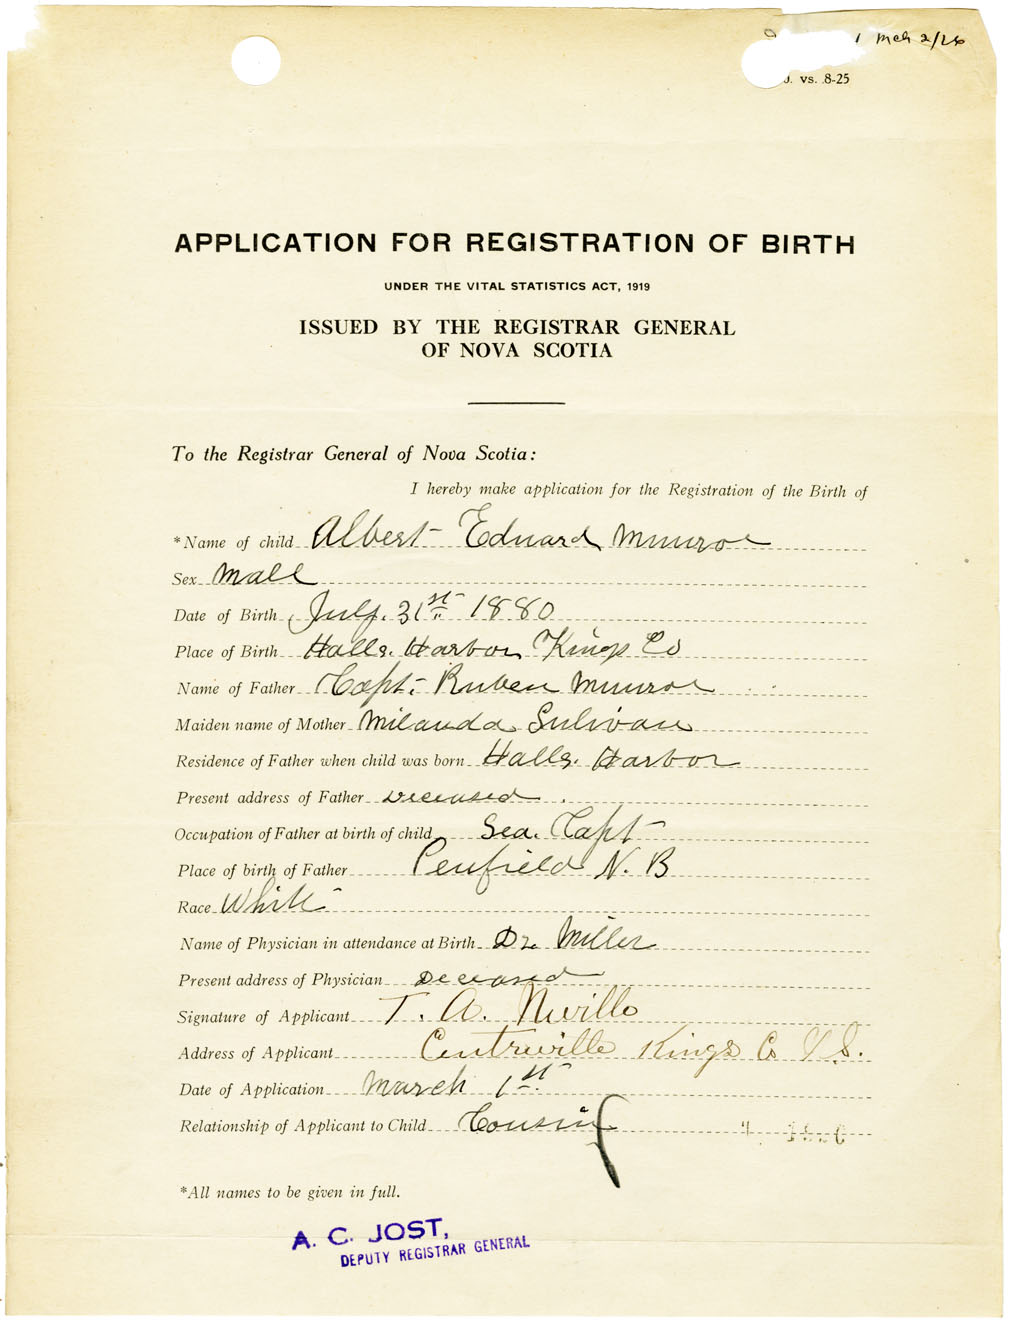 Mch 2/26
vs. 8-25
APPLICATION FOR REGISTRATION OF BIRTH
UNDER THE VITAL STATISTICS ACT, 1919
ISSUED BY THE REGISTRAR GENERAL
OF NOVA SCOTIA
To the Registrar General of Nova Scotia:
I hereby make application for the Registration of the Birth of
*Name of child Albert Edward Munroe
Sex Male
Date of Birth July. 31st 1880
Place of Birth Halls. Harbor Kings Co
Name of Father Capt. Ruben Munroe
Maiden name of Mother Milanda Sulivan
Residence of Father when child was born Halls. Harbor
Present address of Father Deceased.
Occupation of Father at birth of child Sea. Capt
Place of birth of Father Penfield N. B
Race White
Name of Physician in attendance at Birth Dr. Miller
Present address of Physician Deceased
Signature of Applicant T. A. Neville
Address of Applicant Centreville Kings Co N.S.
Date of Application March 1st
Relationship of Applicant to Child Cousin
*All names to be given in full.
A. C. JOST,
DEPUTY REGISTRAR GENERAL